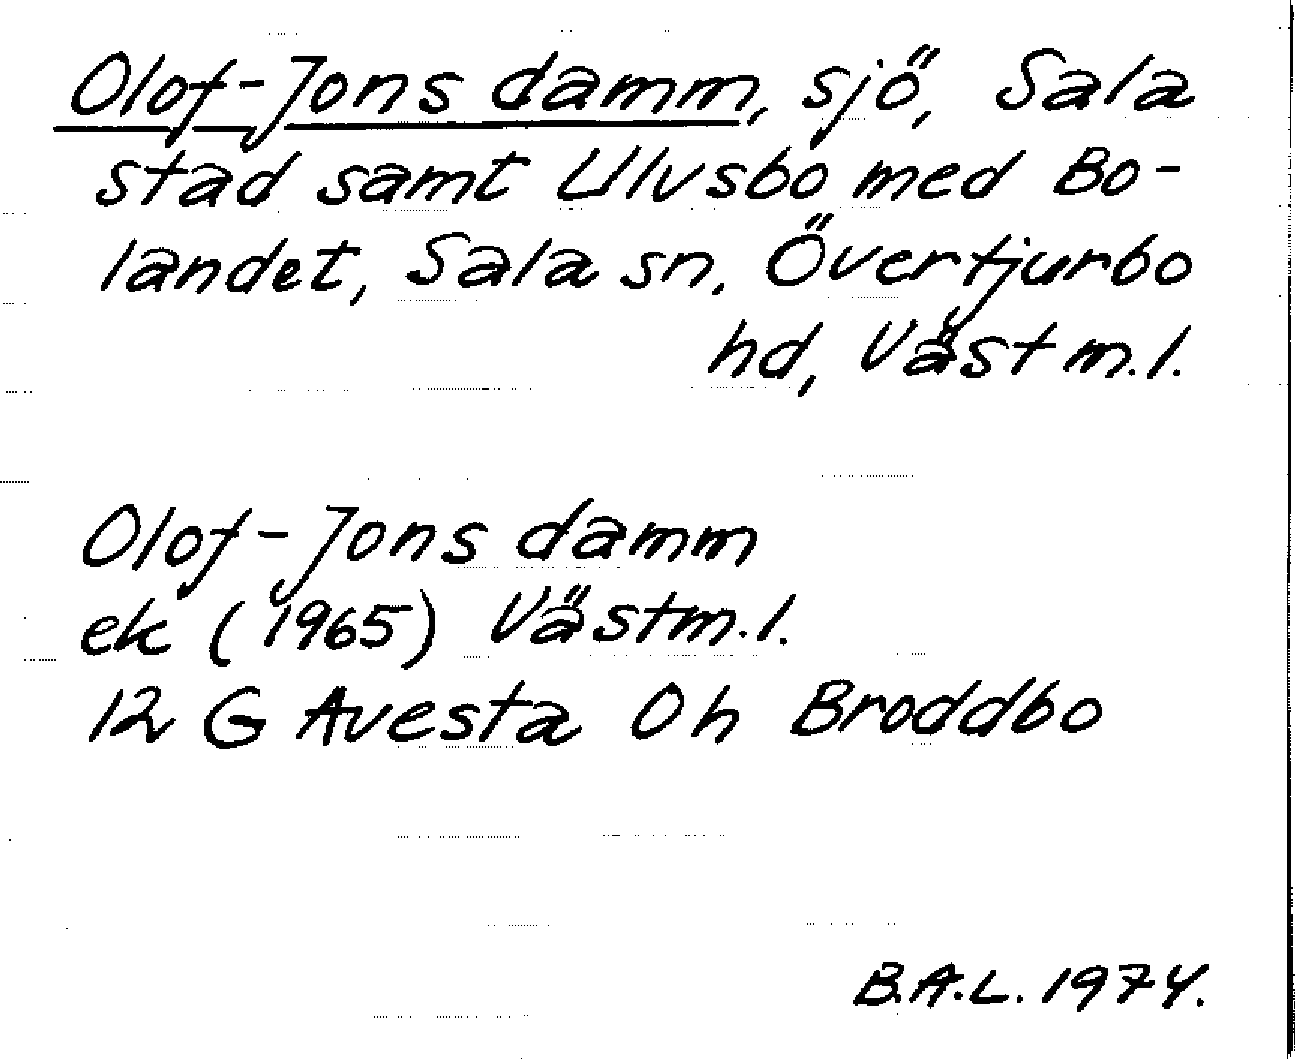 Olof-Jons damm, sjö, Sala
stad samt Ulvsbo med Bo-
landet, Sala sn, Övertjurbo
hd, Västm.l.
Olof-Jons damm
ek (1965) Västm.l.
12 G Avesta 0h Broddbo
B.A.L. 1974.